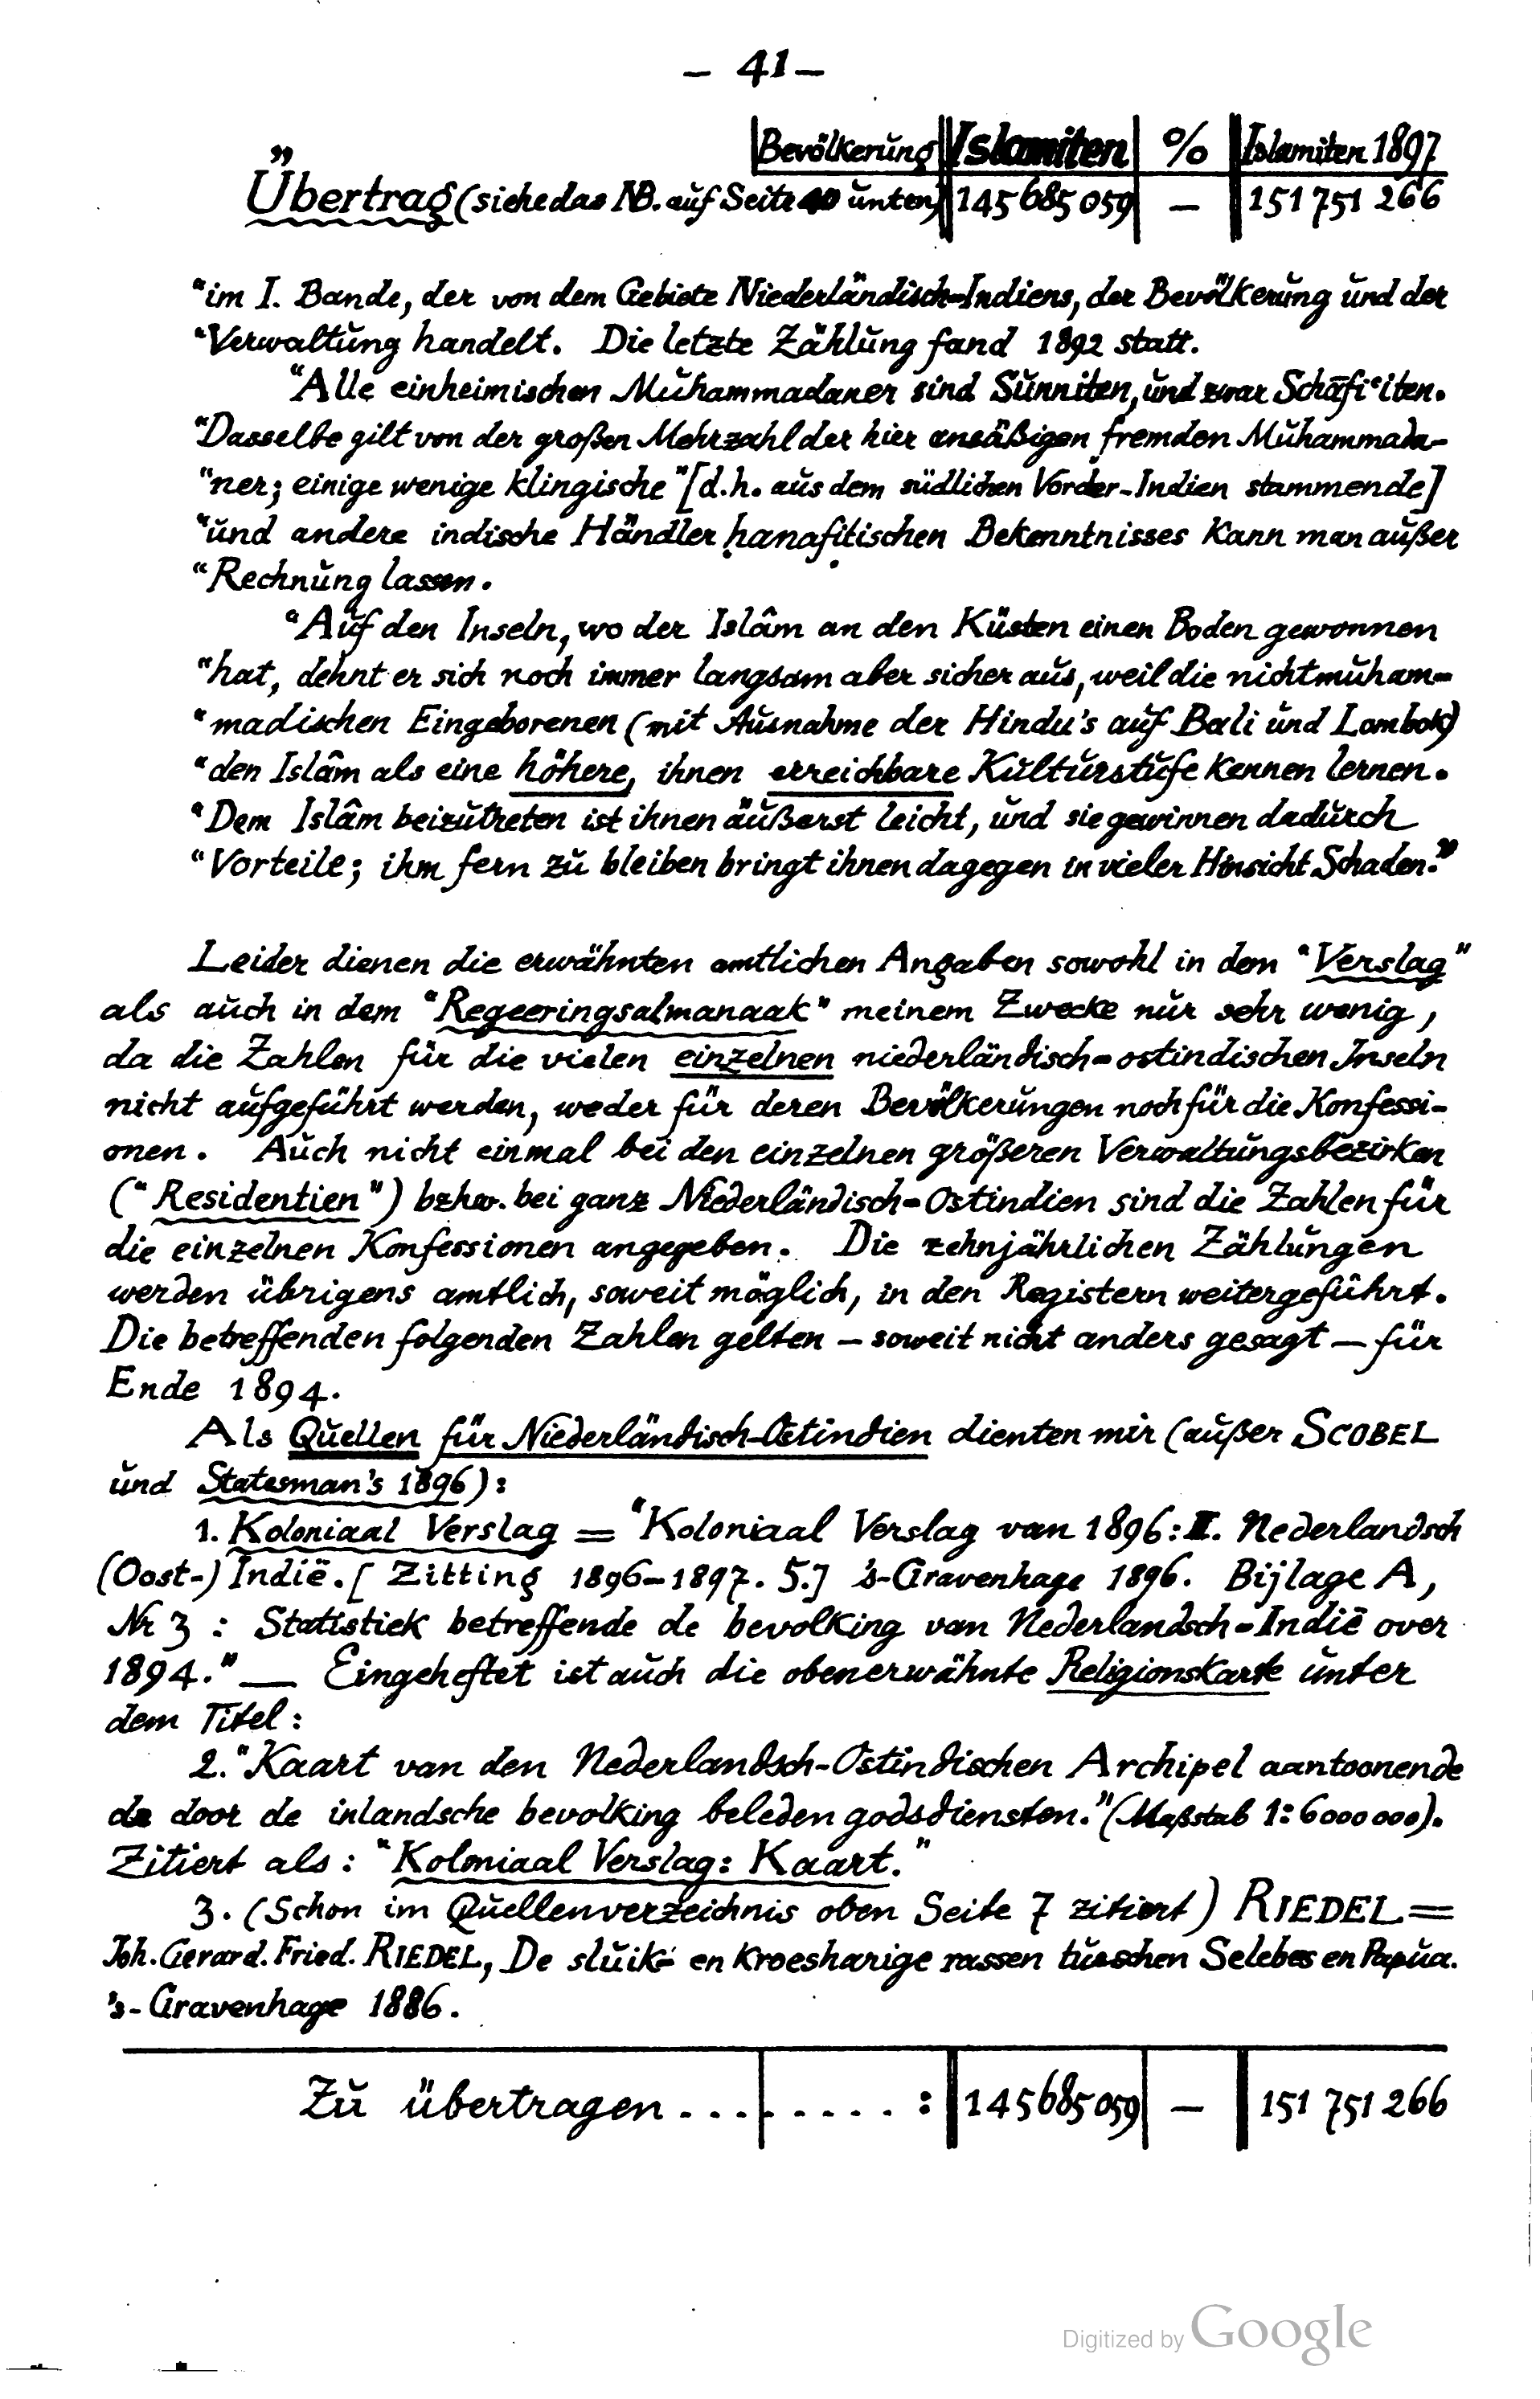 – 41 –
Bevölkerung Islamiten % Islamiten 1897
Übertrag (siehe das NB. auf Seite 40 unten) 145 685 059 – 151 751 266
"im I. Bande, der von dem Gebiete Niederländisch-Indiens, der Bevölkerung und der
"Verwaltung handelt. Die letzte Zählung fand 1892 statt.
"Alle einheimischen Muhammadaner sind Sunniten, und zwar Schāfiʿiten.
"Dasselbe gilt von der großen Mehrzahl der hier ansäßigen fremden Muhammada-
"ner; einige wenige klingische" [d.h. aus dem südlichen Vorder-Indien stammende]
"und andere indische Händler ḥanafitischen Bekenntnisses kann man außer
"Rechnung lassen.
"Auf den Inseln, wo der Islâm an den Küsten einen Boden gewonnen
"hat, dehnt er sich noch immer langsam aber sicher aus, weil die nichtmuham-
"madischen Eingeborenen (mit Ausnahme der Hindu's auf Bali und Lombok)
"den Islâm als eine höhere, ihnen erreichbare Kulturstufe kennen lernen.
"Dem Islâm beizutreten ist ihnen äußerst leicht, und sie gewinnen dadurch
"Vorteile; ihm fern zu bleiben bringt ihnen dagegen in vieler Hinsicht Schaden."
Leider dienen die erwähnten amtlichen Angaben sowohl in dem "Verslag"
als auch in dem "Regeeringsalmanaak" meinem Zwecke nur sehr wenig,
da die Zahlen für die vielen einzelnen niederländisch-ostindischen Inseln
nicht aufgeführt werden, weder für deren Bevölkerungen noch für die Konfessi-
onen. Auch nicht einmal bei den einzelnen größeren Verwaltungsbezirken
("Residentien") bzhw. bei ganz Niederländisch-Ostindien sind die Zahlen für
die einzelnen Konfessionen angegeben. Die zehnjährlichen Zählungen
werden übrigens amtlich, soweit möglich, in den Registern weitergeführt.
Die betreffenden folgenden Zahlen gelten – soweit nicht anders gesagt – für
Ende 1894.
Als Quellen für Niederländisch-Ostindien dienten mir (außer SCOBEL
und Statesman's 1896):
1. Koloniaal Verslag = "Koloniaal Verslag van 1896: II. Nederlandsch
(Oost-) Indië. [Zitting 1896–1897. 5.] 's-Gravenhage 1896. Bijlage A,
Nr 3 : Statistiek betreffende de bevolking van Nederlandsch-Indië over
1894." — Eingeheftet ist auch die obenerwähnte Religionskarte unter
dem Titel:
2. "Kaart van den Nederlandsch-Ostindischen Archipel aantoonende
de door de inlandsche bevolking beleden godsdiensten." (Maßstab 1:6000 000).
Zitiert als: "Koloniaal Verslag: Kaart."
3. (Schon im Quellenverzeichnis oben Seite 7 zitiert) RIEDEL =
Joh. Gerard. Fried. RIEDEL, De sluik- en kroesharige rassen tusschen Selebes en Papua.
's-Gravenhage 1886.
Zu übertragen ........ : 145 685 059 – 151 751 266
Digitized by Google